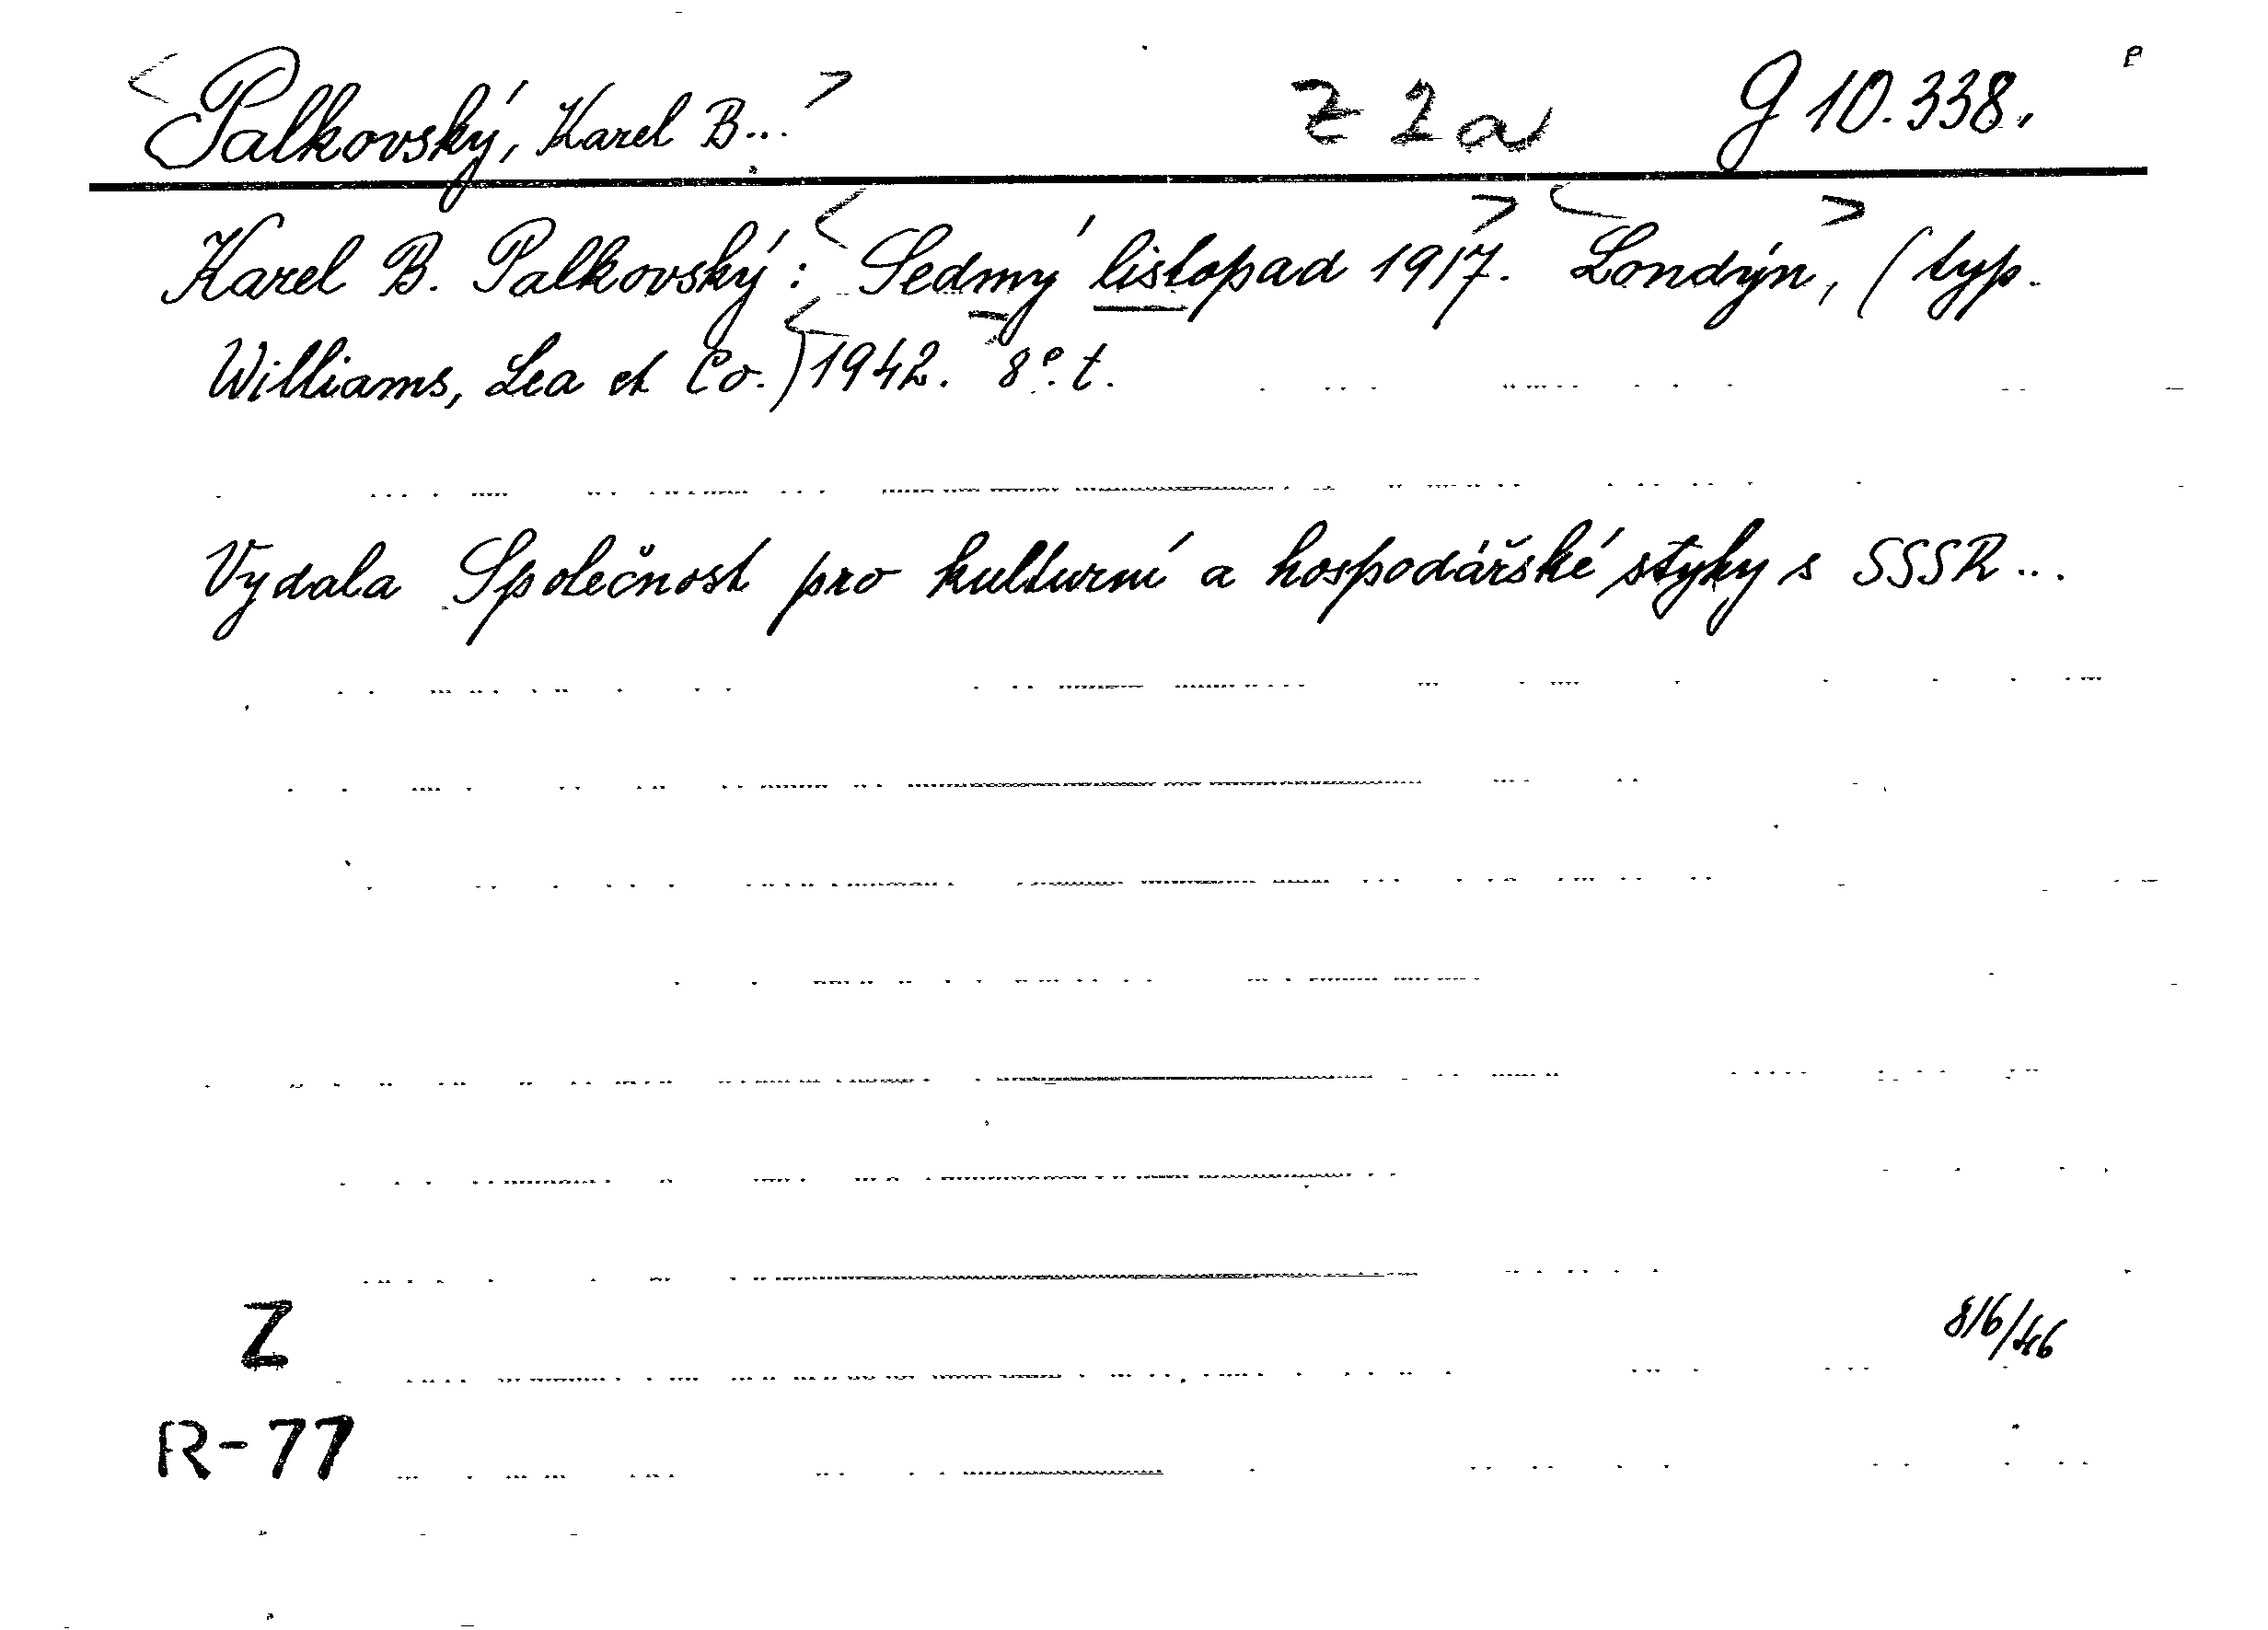 <Palkovský, Karel B...> Z 2a G 10.338.
Karel B. Palkovský: <Sedmý listopad 1917.> <Londýn,> (typ.
Williams, Lea et Co.) <1942. 8°. t.
Vydala Společnost pro kulturní a hospodářské styky s SSSR...
Z 8/6/46
R-77